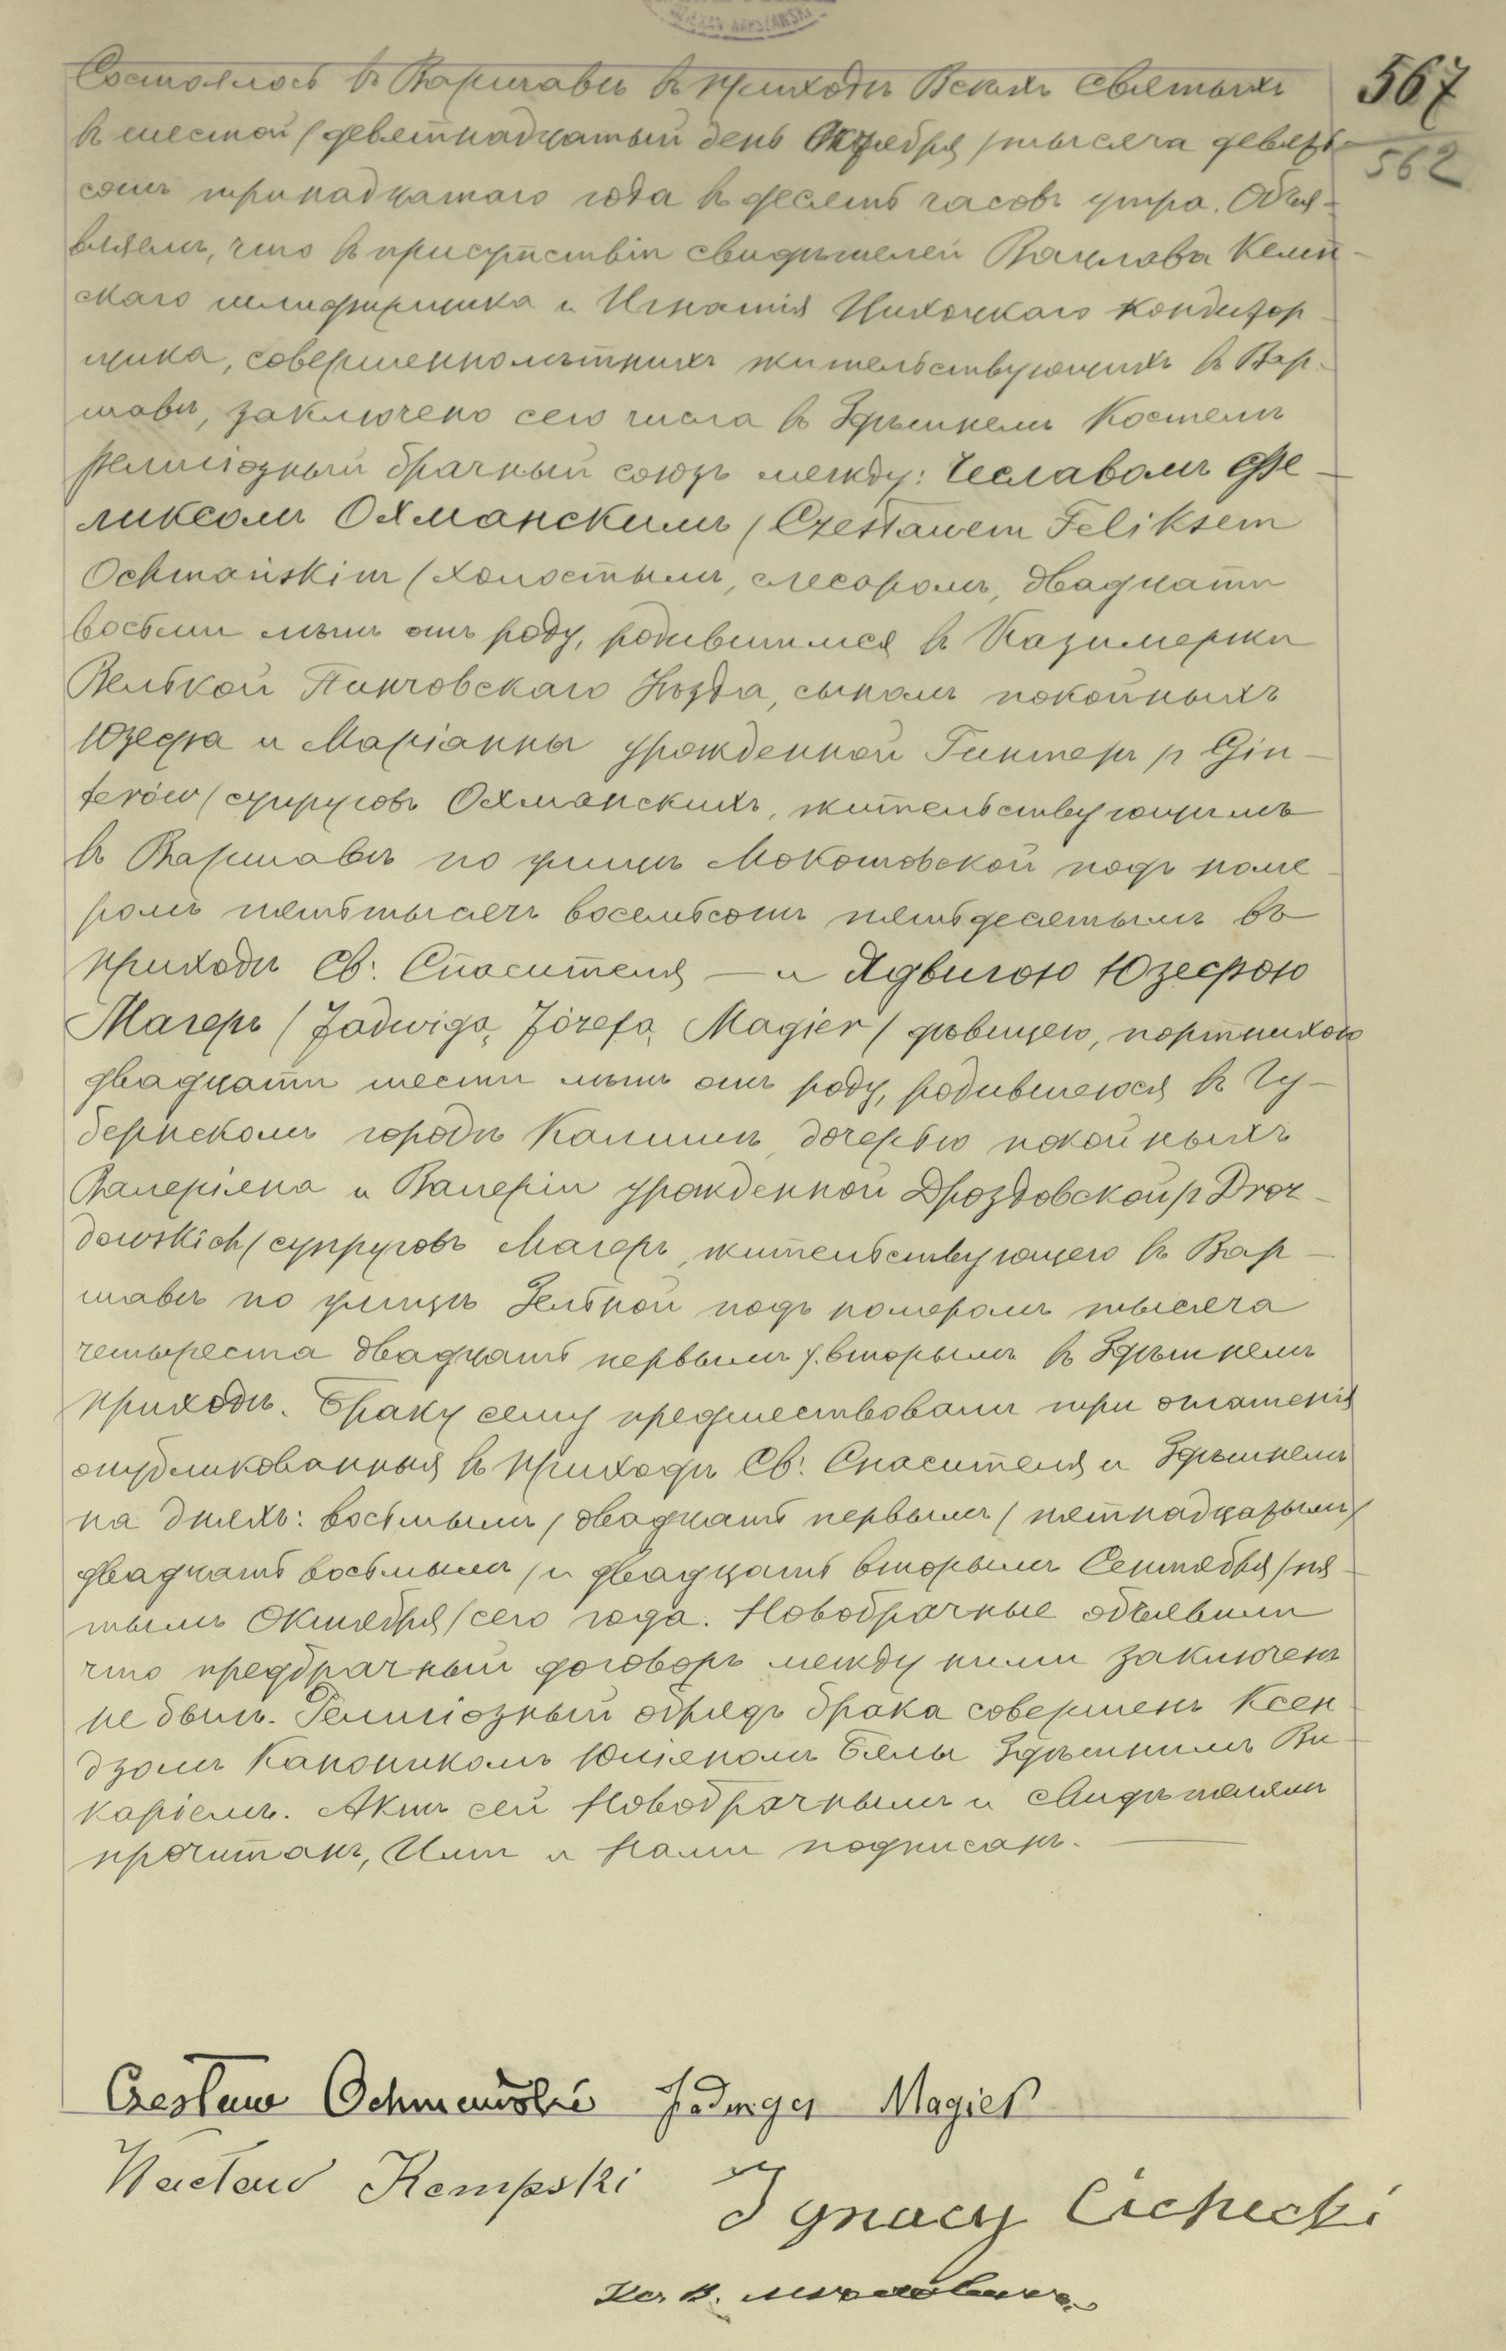 567
562
Состоялось въ Варшавѣ въ приходѣ Всѣхъ Святыхъ
въ шестой /девятнадцатый день Октября /тысяча девять-
сотъ тринадцатаго года въ десять часовъ утра. Объя-
вляемъ, что въ присутствіи свидѣтелей Вацлава Кемп-
скаго шлифирщика и Игнатія Цихоцкаго кондитор-
щика, совершеннолѣтнихъ жительствующихъ въ Вар-
шавѣ, заключено сего числа въ здѣшнемъ Костелѣ
религіозный брачный союзъ между: Чеславомъ Фе-
ликсомъ Охманскимъ /Czesławem Feliksem
Ochmańskim/ холостымъ, слесаромъ, двадцати
восьми лѣтъ отъ роду, родившимся въ Казимержи
Велькой Пинчовскаго Уѣзда, сыномъ покойныхъ
Юзефа и Маріанны урожденной Гинтеръ /z Gin-
terów/ супруговъ Охманскихъ, жительствующимъ
въ Варшавѣ по улицѣ Мокотовской подъ номе-
ромъ пятьтысячъ восемьсотъ пятьдесятымъ въ
приходѣ Св: Спасителя — и Ядвигою Юзефою
Магеръ /Jadwigą Józefą Magier/ дѣвицею, портнихою
двадцати шести лѣтъ отъ роду, родившеюся въ Гу-
бернскомъ городѣ Калишѣ, дочерью покойныхъ
Валеріяна и Валеріи урожденной Дроздовской /z Droz-
dowskich/ супруговъ Магеръ, жительствующею въ Вар-
шавѣ по улицѣ Зельной подъ номеромъ тысяча
четыреста двадцать первымъ /. вторымъ въ здѣшнемъ
приходѣ. Браку сему предшествовали три оглашенія
опубликованныя въ приходѣ Св: Спасителя и здѣшнемъ
на дняхъ: восьмымъ /двадцать первымъ/ пятнадцатымъ/
двадцать восьмымъ/ и двадцать вторымъ Сентября /пя-
тымъ Октября/ сего года. Новобрачные объявили
что предбрачный договоръ между ними заключенъ
не былъ. Религіозный обрядъ брака совершенъ Ксен-
дзомъ Каноникомъ Юліяномъ Бялы здѣшнимъ Ви-
каріемъ. Актъ сей Новобрачнымъ и свидѣтелямъ
прочитанъ, Ими и Нами подписанъ.
Czesław Ochmański Jadwiga Magier
Wacław Kempski Ignacy Cichocki